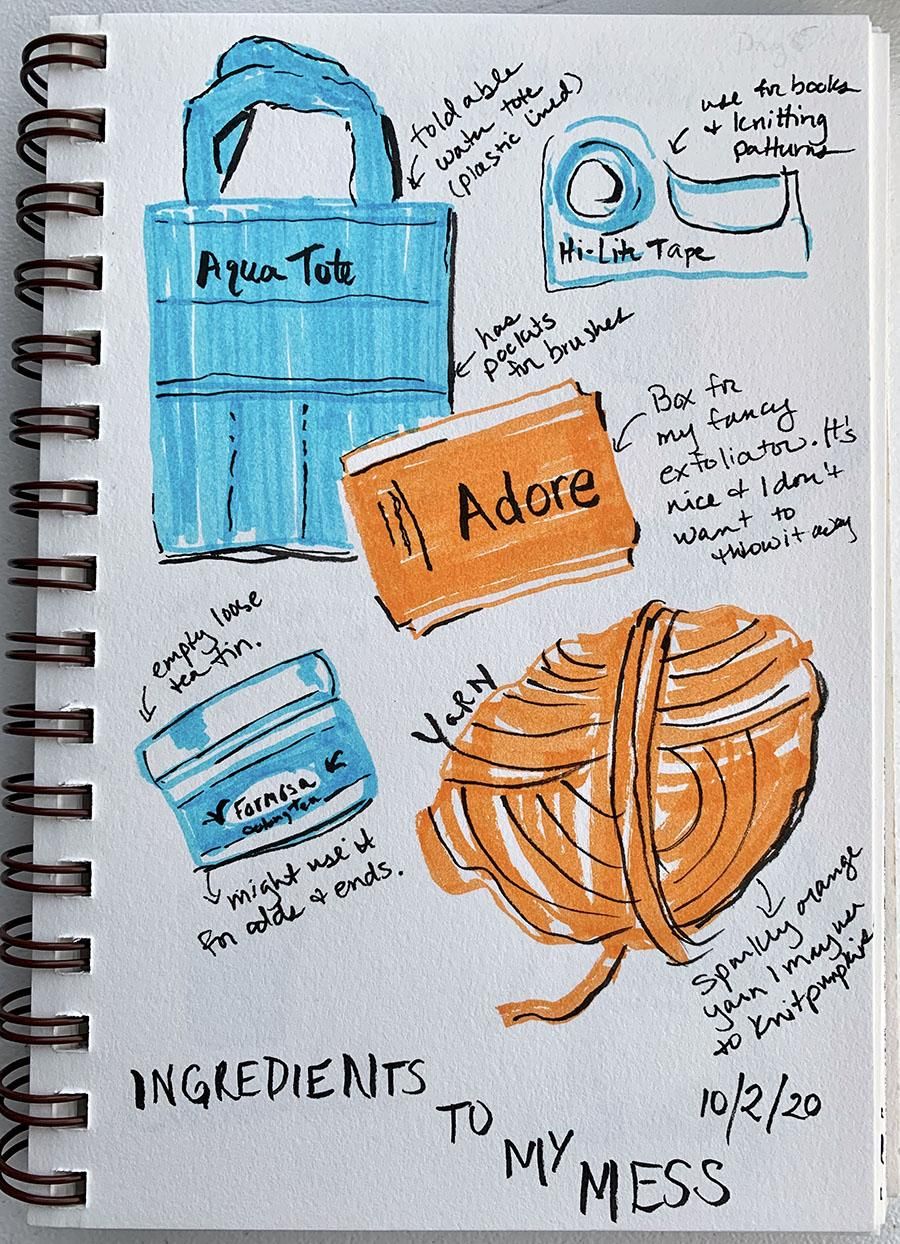 foldable
water tote
(plastic lined)
Aqua Tote
use for books
& knitting
patterns
Hi-Lite Tape
has
pockets
for brushes
Box for
my fancy
exfoliator. It's
nice & I don't
want to
throw it away
Adore
empty loose
tea tin.
Formosa
Oolong Tea
might use it
for odds & ends.
YARN
Sparkly orange
yarn I may use
to knit pumpkins
INGREDIENTS
TO
MY
MESS
10/2/20